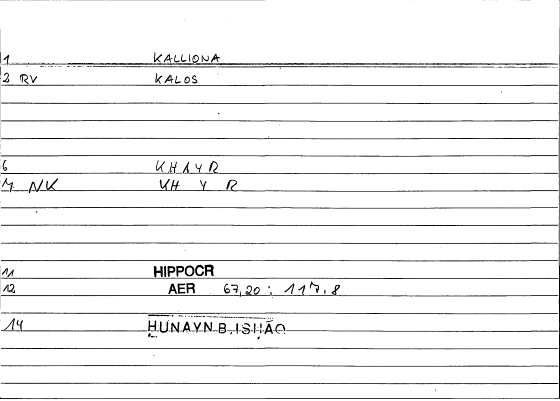 1 KALLIONA
2 RV KALOS
6 KHAYR
7 NK KH Y R
11 HIPPOCR
12 AER 67,20 : 117,8
14 ḤUNAYN B. ISḤĀQ